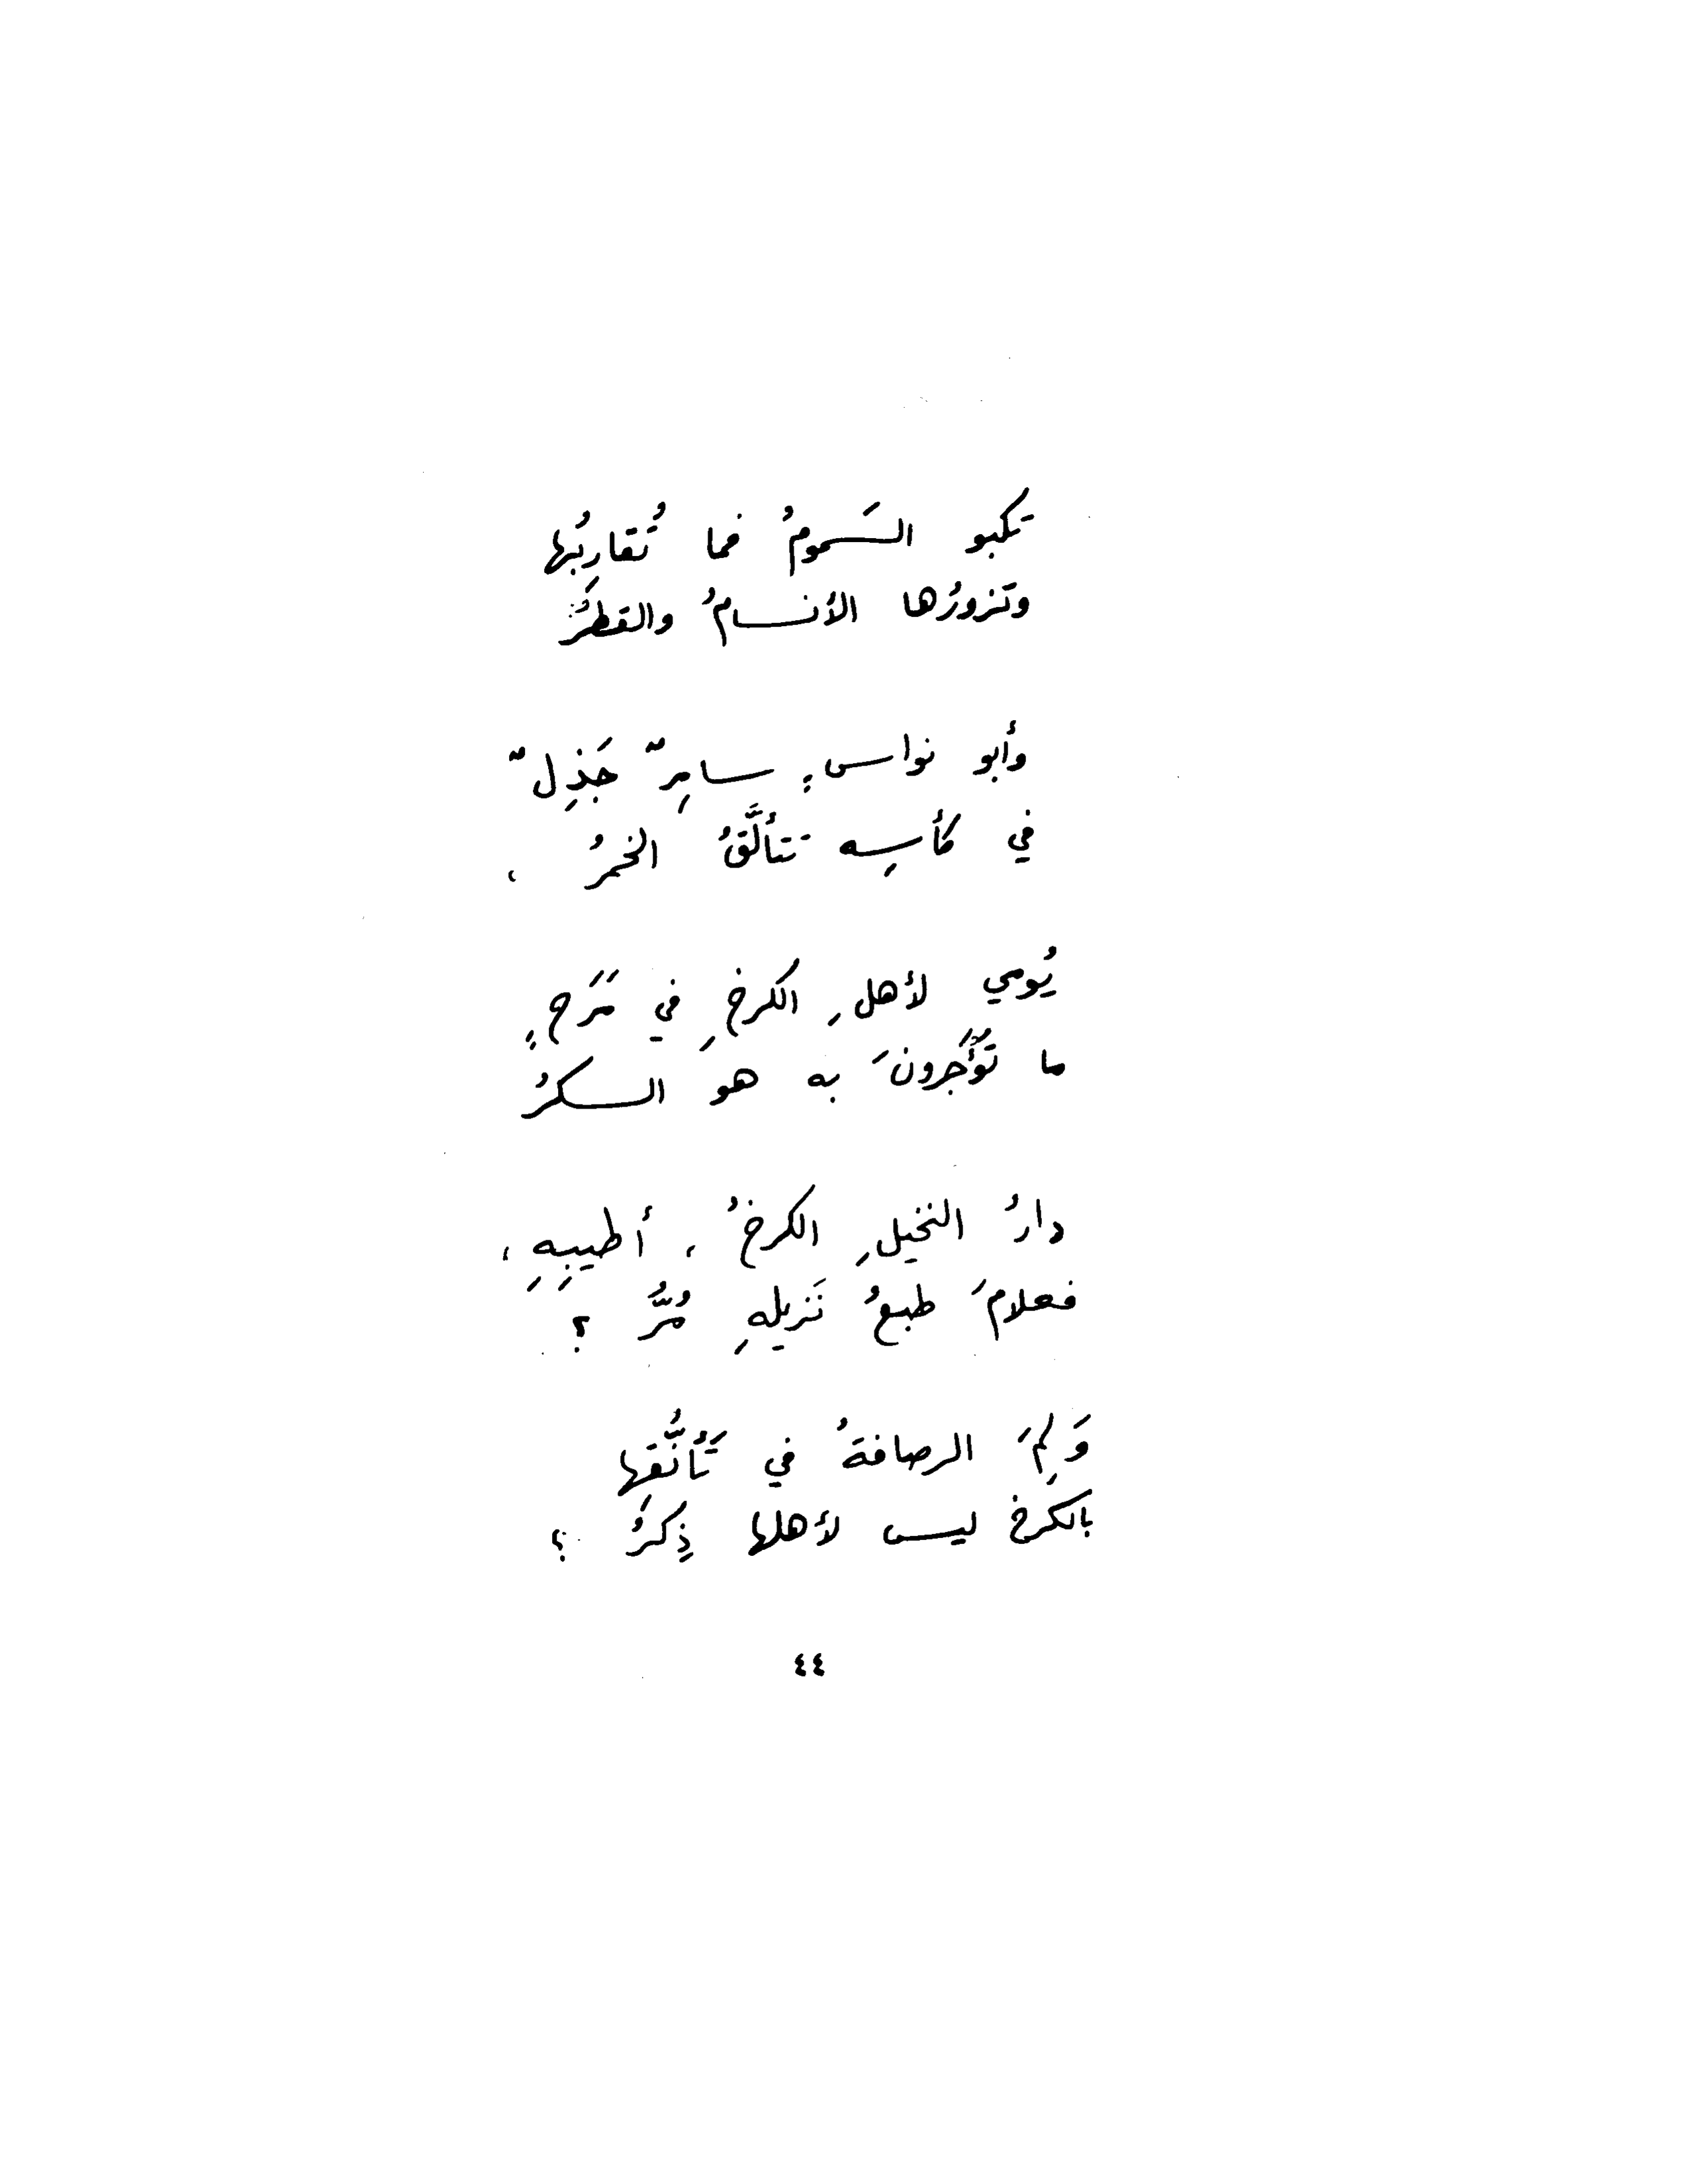 تكبو السَمومُ فما تُقاربُها
وتزورُها الأنسامُ والقطرُ
وأبو نواسٍ سامِرٌ جَذِلٌ
في كأسِه تتألَّقُ الخمرُ ،
يُومي لأهلِ الكرخِ في مَرَحٍ
ما تُؤْجَرونَ به هوَ السكرُ
دارُ النخيلِ الكرخُ ، أطيبِهِ ،
فعلامَ طبعُ نَزيلِهِ مُرُّ ؟
وَلِمَ الرصافةُ في تَأنُّقِها
بالكَرخِ ليس لأهلها ذِكرُ ؟
٤٤